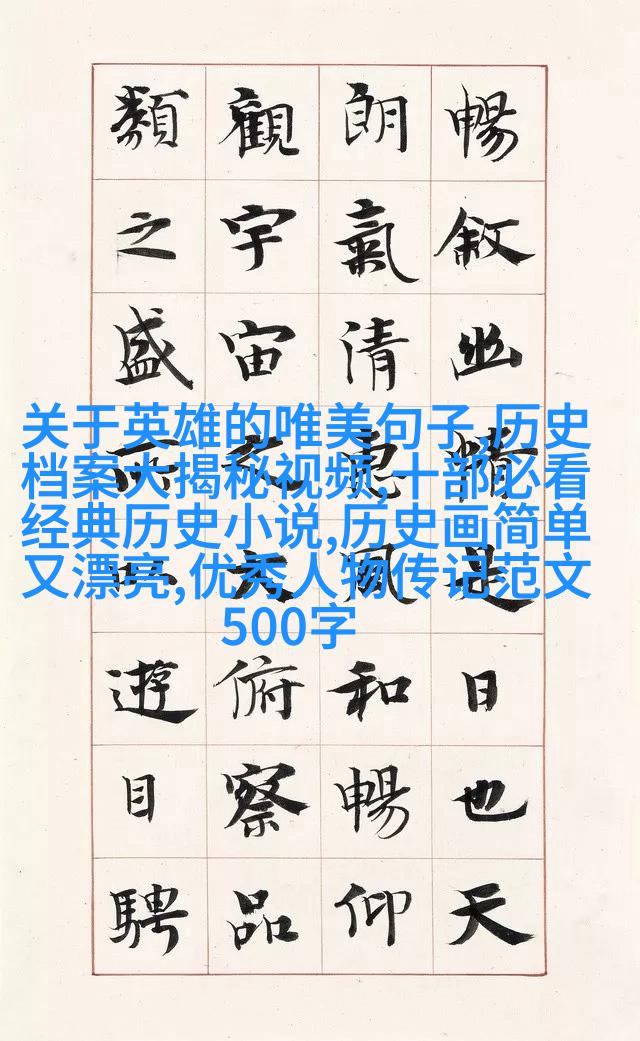 暢敘幽情是日也天
朗氣清惠風和暢仰
觀宇宙之大俯察品
類之盛所以遊目騁
关于英雄的唯美句子,历史
档案大揭秘视频,十部必看
经典历史小说,历史画简单
又漂亮,优秀人物传记范文
500字